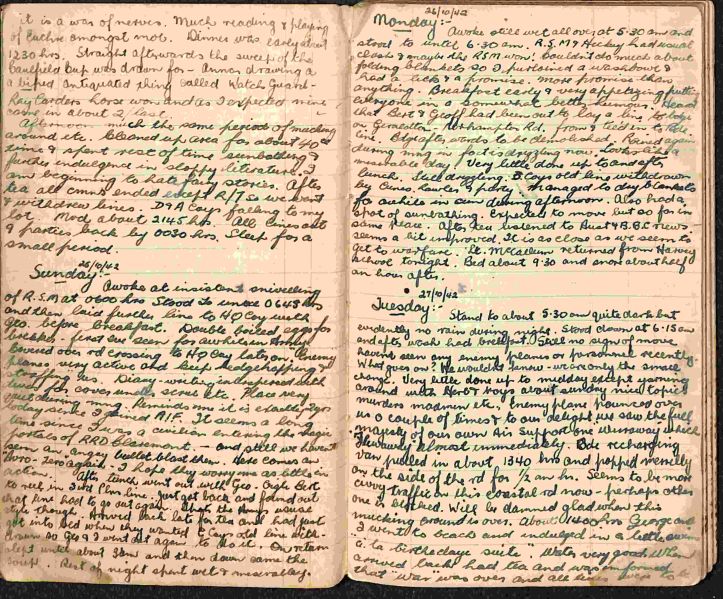 it is a war of nerves. Much reading & playing
of euchre amongst mob. Dinner was early about
1230 hrs. Straight afterwards the sweep of the
Caulfield Cup was drawn for - drawing a
a bifed antiquated thing called Watch Guard -
Ray tarders horse won and as I expected mine
came in about 2 last.
Afternoon much the same period of mucking
around etc. Cleaned up area for about 40
time & spent rest of time sunbathing &
further indulgence in sloppy literature. I
am beginning to hate fairy stories. After
tea all cmns ended except R/T so we went
& withdrew lines. D & A Coys falling to my
lot. Mod about 2145 hrs. All lines out
& parties back by 0030 hrs. Slept for a
small period.
26/10/42
Sunday:-
Awoke at insistent snivelling
of R.S.M at 0600 hrs Stood to until 0645 hrs
and then laid further line to HQ Coy with
Geo. before breakfast. Double boiled eggs for
brekker - first eve seen for awhile in Army.
over rd crossing to HQ Coy later on. Enemy
planes very active and keep hedgehopping &
strafing us. Diary-writing interspersed with
dives for cover under scrub etc. Place very
quiet during most. Reminds me it is exactly 2 yrs
today since I joined A.I.F. It seems a long
time since I was a civilian entering the magic
portals of RRD Claremont - and still we havent
seen an angry bullet blast them. Here comes an
"Avro" "zero" again. I hope they worry us as little in
action. After lunch went out with Geo. Gigli Bert
to reel in 3 wd Plns line. Just got back and found out
that line had to go out again. the Armys usual
style though. Arrived back late for tea and had just
got into bed when they wanted C Coys old line with-
drawn so Geo & I went out again to do it. On return
slept until about 3am and then down came the
soup. Rest of night spent wet & miserably.
26/10/42
Monday:-
Awoke still wet all over at 5.30 am and
stood to until 6.30 am. R.S.M & Heckey had usual
clash & maybe the RSM won. Couldn't do much about
folding blankets so I purloined a washbowl &
had a lick & a promise - more promise than
anything. Breakfast early & very appetizing putting
everyone in a somewhat better humour. Heard
that Bert & Geoff had been out to lay a line to bdge
on Geraldton - Northampton Rd. from & tied in to Bde
line. Bdge afterwards to be demolished. Rained again
during morn in fact is drizzling now. Looks like a
miserable day. Very little done up to and after
lunch. Still drizzling. B Coys old line withdrawn
by Lines, Lawler & party. Managed to dry blankets
for awhile in sun during afternoon. Also had a
spot of sunbathing. Expected to move but so far in
same place. After tea listened to Aust & B.B.C. news.
Seems a bit improved. It is as close as we seem to
get to warfare. Lt. McKallum returned from Harvey
school tonight. Bed about 9.30 and snore about half
an hour after.
27/10/42
Tuesday:-
Stand to about 5.30 am quite dark but
evidently no rain during night. Stood down at 6.15 am
and after wash had breakfast. Still no sign of move
havent seen any enemy planes or personnel recently.
What goes on? We wouldn't know - we are only the small
change. Very little done up to midday except yarning
around with Herb & boys about sundry nice topics
murders madmen etc. Enemy plane pounced over
us a couple of times & to our delight we saw the full
majesty of our own Air Support one Wirraway which
flew away almost immediately. Bde recharging
van pulled in about 1340 hrs and popped merrily
on the side of the rd for 1/2 an hr. Seems to be more
civvy traffic on this coastal rd now - perhaps other
one is blocked. Will be damned glad when this
mucking around is over. About 1400 hrs George and
I went to beach and indulged in a little swim
a' la birthdaye suite. Water very good. When
arrived back had tea and was informed
that "war" was over and all lines were to be